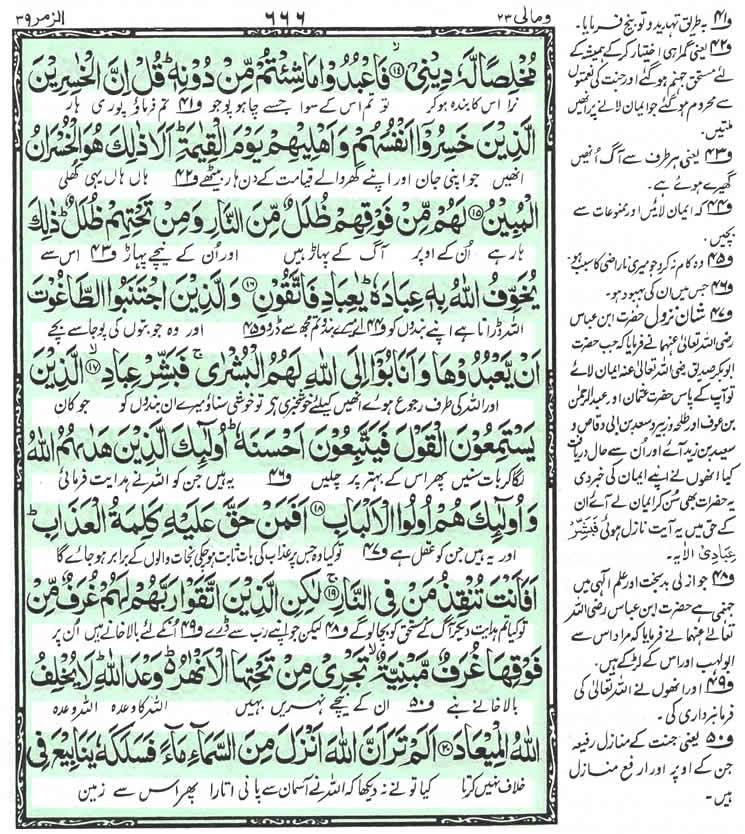 الزمر ٣٩
٦٦٦
ومالی ٢٣
مُخْلِصًا لَّهٗ دِیْنِیْ ﴿١٤﴾ فَاعْبُدُوْا مَا شِئْتُمْ مِّنْ دُوْنِهٖ ؕ قُلْ اِنَّ الْخٰسِرِیْنَ
نرا اس کا بندہ ہو کر تو تم اس کے سوا جسے چاہو پوجو و٤١ تم فرماؤ پوری ہار
الَّذِیْنَ خَسِرُوْۤا اَنْفُسَهُمْ وَ اَهْلِیْهِمْ یَوْمَ الْقِیٰمَةِ ؕ اَلَا ذٰلِكَ هُوَ الْخُسْرَانُ
انھیں جو اپنی جان اور اپنے گھر والے قیامت کے دن ہار بیٹھے و٤٢ ہاں ہاں یہی کھلی
الْمُبِیْنُ ﴿١٥﴾ لَهُمْ مِّنْ فَوْقِهِمْ ظُلَلٌ مِّنَ النَّارِ وَ مِنْ تَحْتِهِمْ ظُلَلٌ ؕ ذٰلِكَ
ہار ہے اُن کے اوپر آگ کے پہاڑ ہیں اور اُن کے نیچے پہاڑ و٤٣ اس سے
یُخَوِّفُ اللّٰهُ بِهٖ عِبَادَهٗ ؕ یٰعِبَادِ فَاتَّقُوْنِ ﴿١٦﴾ وَ الَّذِیْنَ اجْتَنَبُوا الطَّاغُوْتَ
اللہ ڈراتا ہے اپنے بندوں کو و٤٤ اے میرے بندو تم مجھ سے ڈرو و٤٥ اور وہ جو بتوں کی پوجا سے بچے
اَنْ یَّعْبُدُوْهَا وَ اَنَابُوْۤا اِلَى اللّٰهِ لَهُمُ الْبُشْرٰى ۚ فَبَشِّرْ عِبَادِ ﴿١٧﴾ الَّذِیْنَ
اور اللہ کی طرف رجوع ہوئے انھیں کیلئے خوشخبری ہے تو خوشی سناؤ میرے ان بندوں کو جو کان
یَسْتَمِعُوْنَ الْقَوْلَ فَیَتَّبِعُوْنَ اَحْسَنَهٗ ؕ اُولٰٓىِٕكَ الَّذِیْنَ هَدٰىهُمُ اللّٰهُ
لگا کر بات سنیں پھر اس کے بہتر پر چلیں و٤٦ یہ ہیں جن کو اللہ نے ہدایت فرمائی
وَ اُولٰٓىِٕكَ هُمْ اُولُوا الْاَلْبَابِ ﴿١٨﴾ اَفَمَنْ حَقَّ عَلَیْهِ كَلِمَةُ الْعَذَابِ ؕ
اور یہ ہیں جن کو عقل ہے و٤٧ تو کیا وہ جس پر عذاب کی بات ثابت ہو چکی نجات والوں کے برابر ہو جائے گا
اَفَاَنْتَ تُنْقِذُ مَنْ فِی النَّارِ ﴿١٩﴾ لٰكِنِ الَّذِیْنَ اتَّقَوْا رَبَّهُمْ لَهُمْ غُرَفٌ مِّنْ
تو کیا تم ہدایت دیکر آگ کے مستحق کو بچا لو گے و٤٨ لیکن جو اپنے رب سے ڈرے و٤٩ اُنکے لئے بالاخانے ہیں اُن پر
فَوْقِهَا غُرَفٌ مَّبْنِیَّةٌ ۙ تَجْرِیْ مِنْ تَحْتِهَا الْاَنْهٰرُ ؕ وَعْدَ اللّٰهِ ؕ لَا یُخْلِفُ
بالاخانے بنے و٥٠ ان کے نیچے نہریں بہیں اللہ کا وعدہ اللہ وعدہ
اللّٰهُ الْمِیْعَادَ ﴿٢٠﴾ اَلَمْ تَرَ اَنَّ اللّٰهَ اَنْزَلَ مِنَ السَّمَآءِ مَآءً فَسَلَكَهٗ یَنَابِیْعَ فِی
خلاف نہیں کرتا کیا تو نے نہ دیکھا کہ اللہ نے آسمان سے پانی اتارا پھر اس سے زمین
و٤١ بہ طریق تہدید و توبیخ فرمایا۔
و٤٢ یعنی گمراہی اختیار کرکے ہمیشہ کے
لئے مستحق جہنم ہو گئے اور جنت کی نعمتوں
سے محروم ہو گئے جو ایمان لانے پر انھیں
ملتیں۔
و٤٣ یعنی ہر طرف سے آگ اُنھیں
گھیرے ہوئے ہے۔
و٤٤ کہ ایمان لائیں اور ممنوعات سے
بچیں۔
و٤٥ وہ کام نہ کرو جو میری ناراضی کا سبب ہو
و٤٦ جس میں ان کی بہبود ہو۔
و٤٧ شان نزول حضرت ابن عباس
رضی اللہ تعالیٰ عنہما نے فرمایا کہ جب حضرت
ابوبکر صدیق رضی اللہ تعالیٰ عنہ ایمان لائے
تو آپ کے پاس حضرت عثمان اور عبدالرحمٰن
بن عوف اور طلحہ و زبیر و سعد بن ابی وقاص و
سعید بن زید آئے اور اُن سے حال دریافت
کیا انھوں نے اپنے ایمان کی خبر دی
یہ حضرات بھی سُن کر ایمان لے آئے ان
کے حق میں یہ آیت نازل ہوئی فَبَشِّرْ
عِبَادِیَ الْآیہ۔
و٤٨ جو ازلی بدبخت اور علم الٰہی میں
جہنمی ہے حضرت ابن عباس رضی اللہ
تعالیٰ عنہما نے فرمایا کہ مراد اس سے
ابولہب اور اس کے لڑکے ہیں۔
و٤٩ اور انھوں نے اللہ تعالیٰ کی
فرمانبرداری کی۔
و٥٠ یعنی جنت کے منازل رفیعہ
جن کے اوپر اور ارفع منازل
ہیں۔